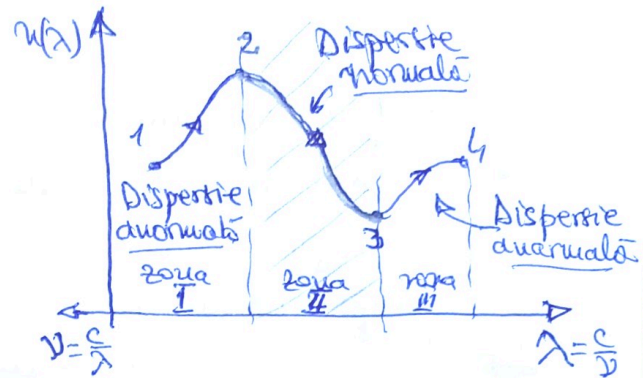 n(λ)
2
Dispersie
normală
1
4
Dispersie
anormală
3
Dispersie
anormală
zona
I
zona
II
zona
III
ν=c/λ
λ=c/ν